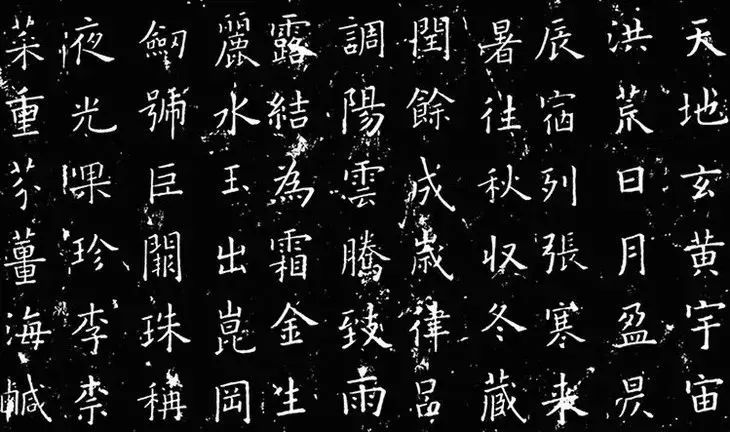 天地玄黃宇宙
洪荒日月盈昃
辰宿列張寒来
暑往秋收冬藏
閏餘成歲律呂
調陽雲騰致雨
露結為霜金生
麗水玉出崑岡
劒號巨闕珠稱
夜光果珍李柰
菜重芥薑海鹹